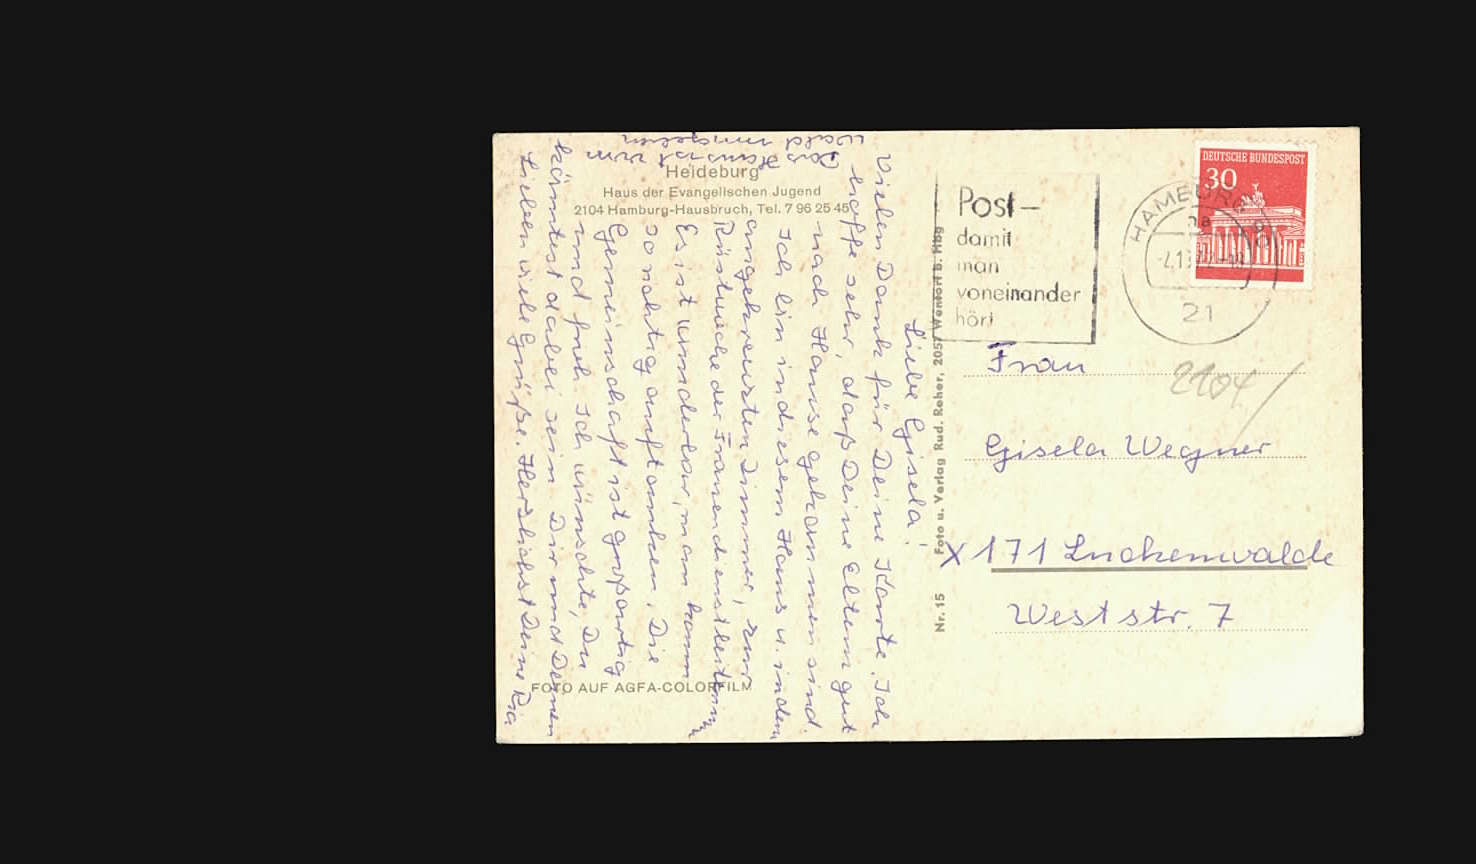 Heideburg
Haus der Evangelischen Jugend
2104 Hamburg-Hausbruch, Tel. 7 96 25 45
Liebe Gisela!
Vielen Dank für Deine Karte. Ich
hoffe sehr, daß Deine Eltern gut
nach Hause gekommen sind.
Ich bin in diesem Haus u. in dem
angekreuzten Zimmer, zur
Rüstwoche der Frauendienstleiterinnen
Es ist wunderbar, man kann
so richtig auftanken. Die
Gemeinschaft ist großartig
und froh. Ich wünschte, Du
könntest dabei sein. Dir und Deinen
Lieben viele Grüße. Herzlichst Deine Ria
Das Haus ist vom
Wald umgeben
FOTO AUF AGFA-COLORFILM
Nr. 15 Foto u. Verlag Rud. Reher, 2057 Wentorf b. Hbg
Post –
damit
man
voneinander
hört
HAMBURG
21
DEUTSCHE BUNDESPOST
30
2104
Frau
Gisela Wegner
X 171 Luckenwalde
Weststr. 7